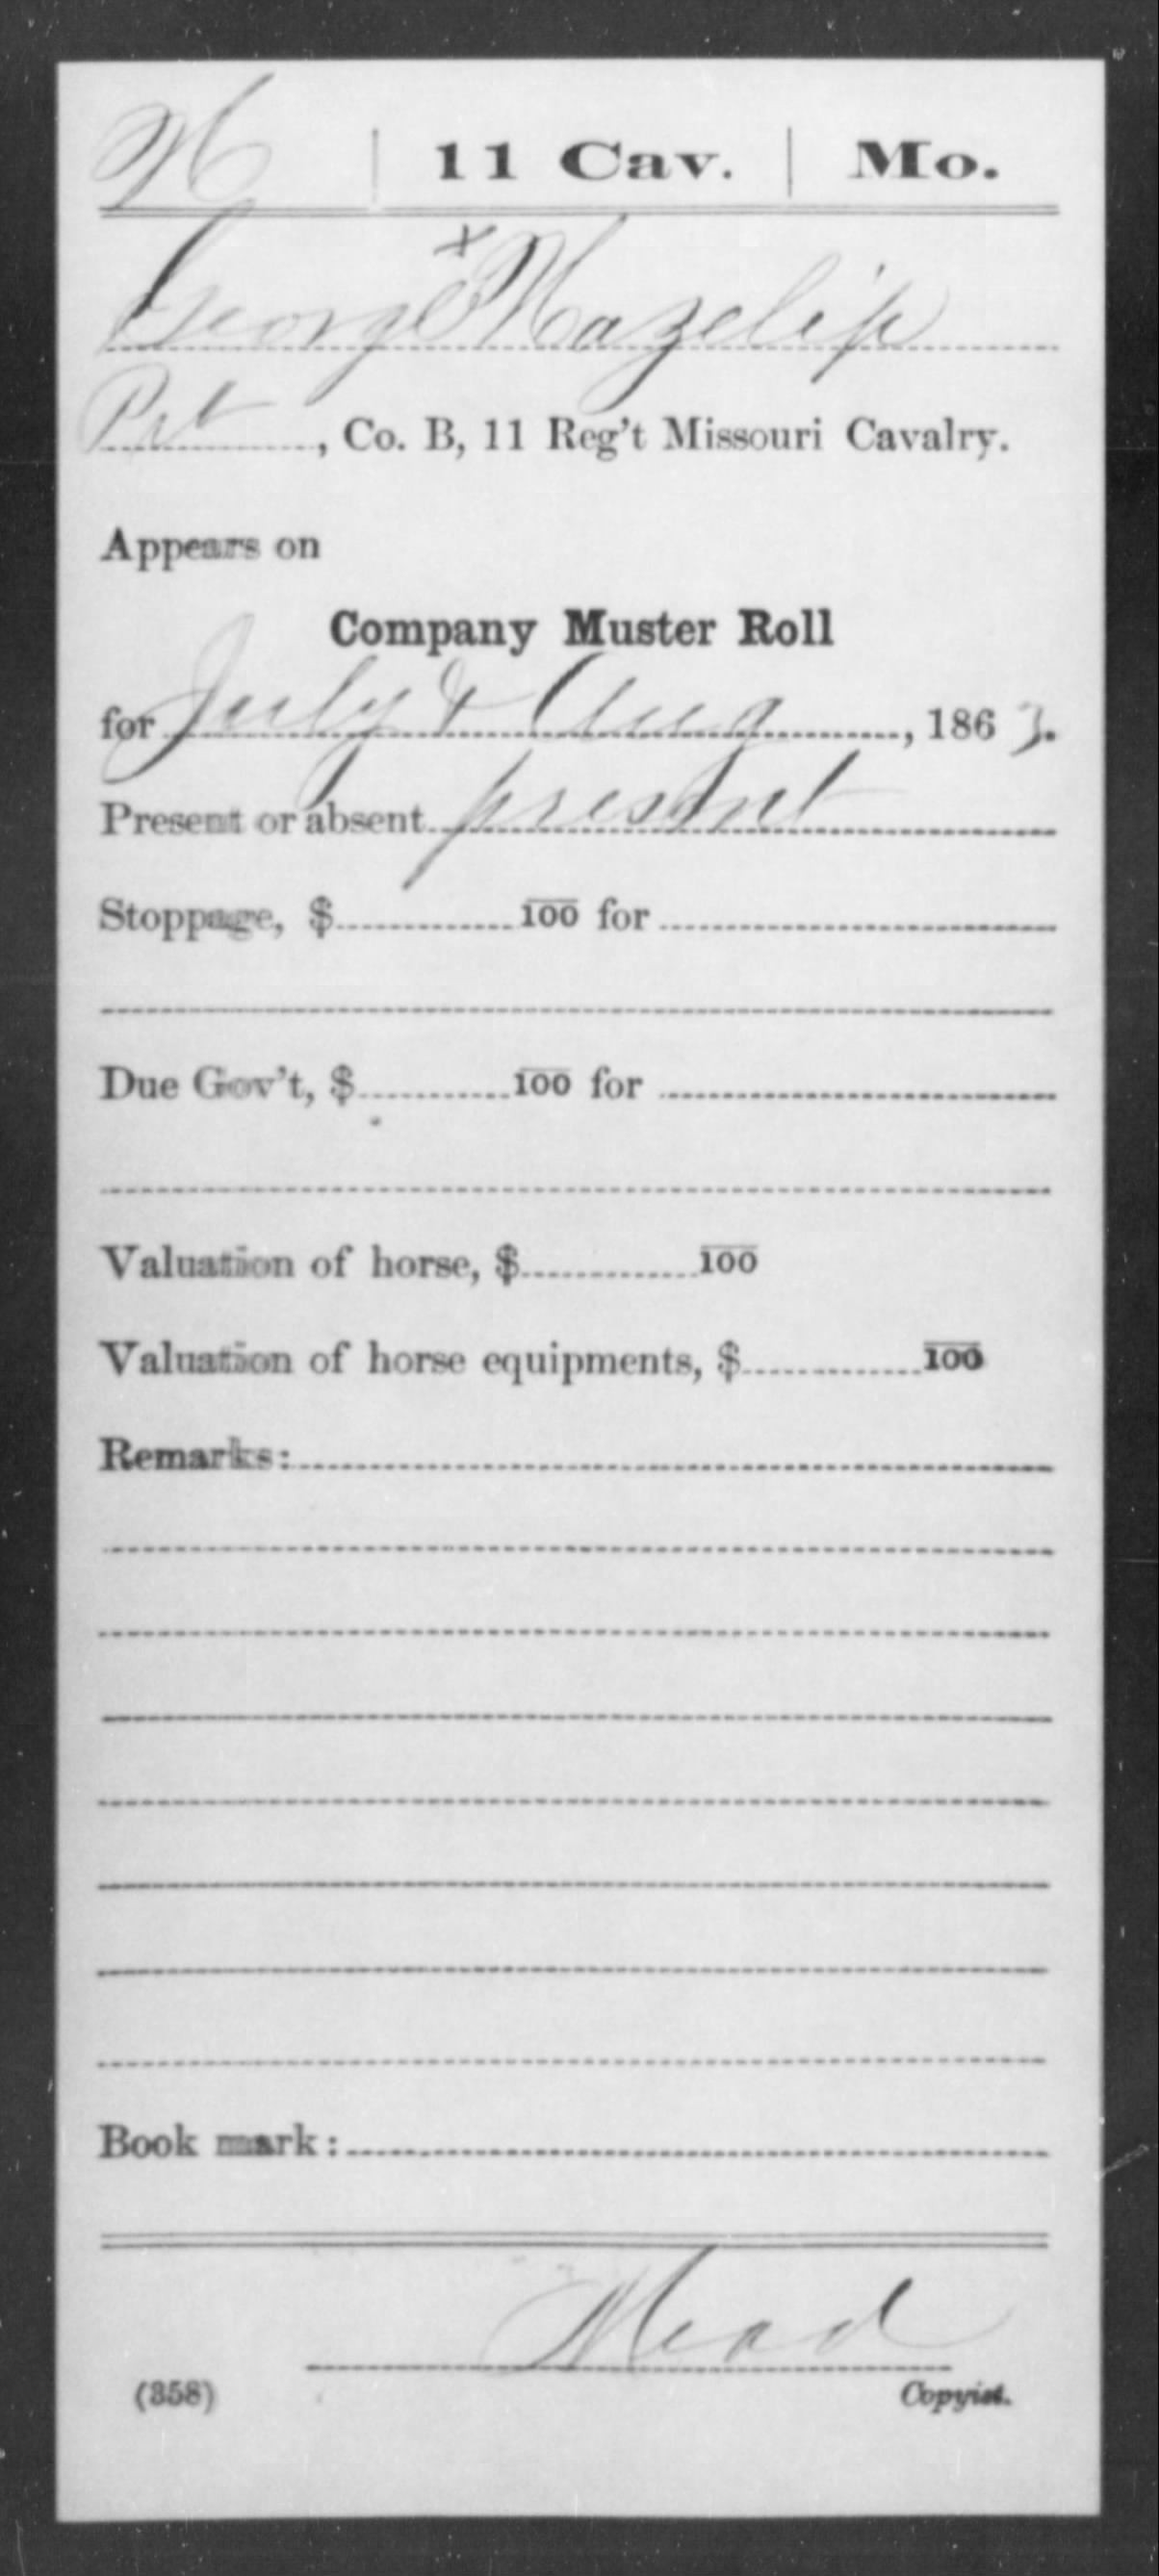 H | 11 Cav. | Mo.
x
George Hazelip
Pvt, Co. B, 11 Reg't Missouri Cavalry.
Appears on
Company Muster Roll
for July & Aug, 1863.
Present or absent present
Stoppage, $ 100 for
Due Gov't, $ 100 for
Valuation of horse, $ 100
Valuation of horse equipments, $ 100
Remarks:
Book mark:
Mead
(358) Copyist.